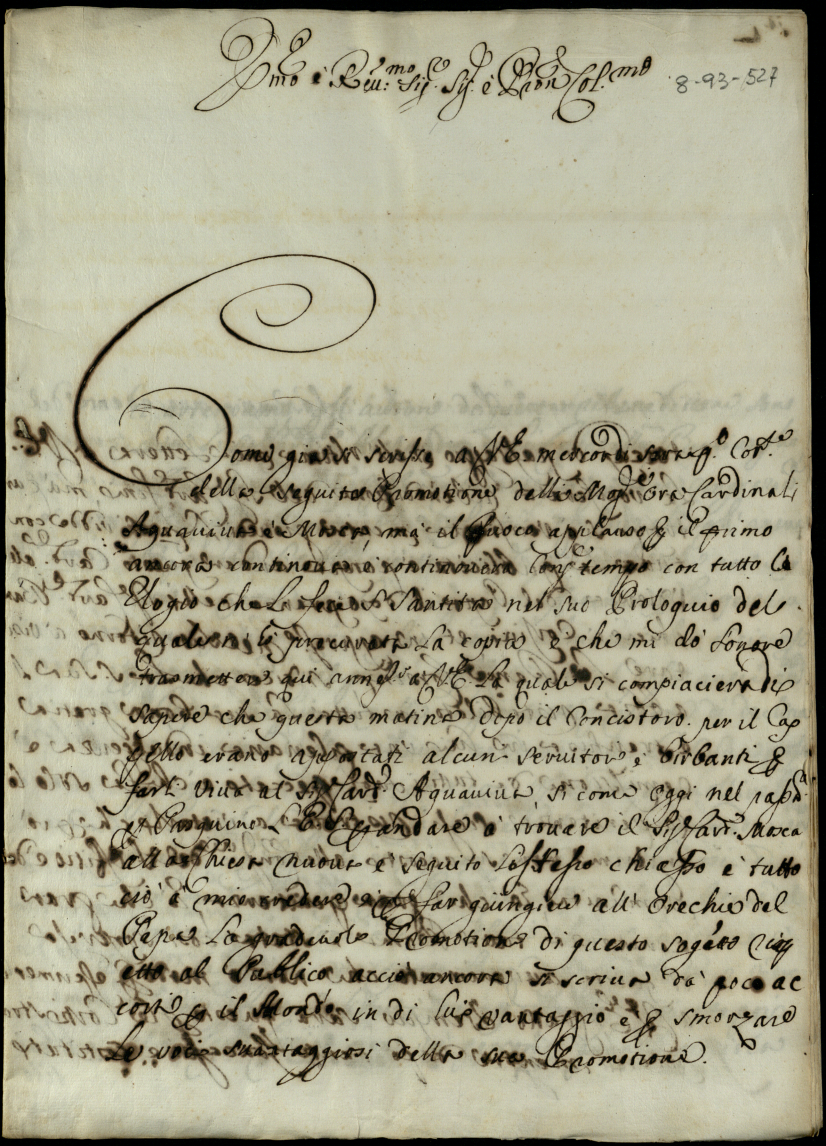 Em.mo e Reu:mo Sig.r Sig. e Pron Col.mo
8-93-527
Come già li scrissi a V.E. mercordì sera p. Cor.te
della seguita Promotione delli Cardinali
Aquauiua e Mosca, ma il fuoco aplauso il primo
ancora continoua e continouera tempo con tutto lo
Elogio che Le fece S. Santità nel suo Prologuio del
quale si è procurata La copia e che mi dò l'onore
trasmettere qui annessa a V.E. La quale si compiacierà di
sapere che questa matina dopò il Concistoro per il Cap
pello erano apostati alcuni seruitori e Birbanti p
farli Viua al Sig. Card. Aquauiua si come oggi nel
p andare à trouare il Sig. Card. Mosca
alla Chiesa nuoua è seguito L'istesso chiasso e tutto
ciò è mio credere p far giungiere all' Orechie del
Papa La gradeuole Promotione di questo sogetto
etto al Publico acciò ancora si scriua dà poco ac
corti p il Mondo in di lui vantaggio e p smorzare
Le voci suantaggiosi della sua Promotione.